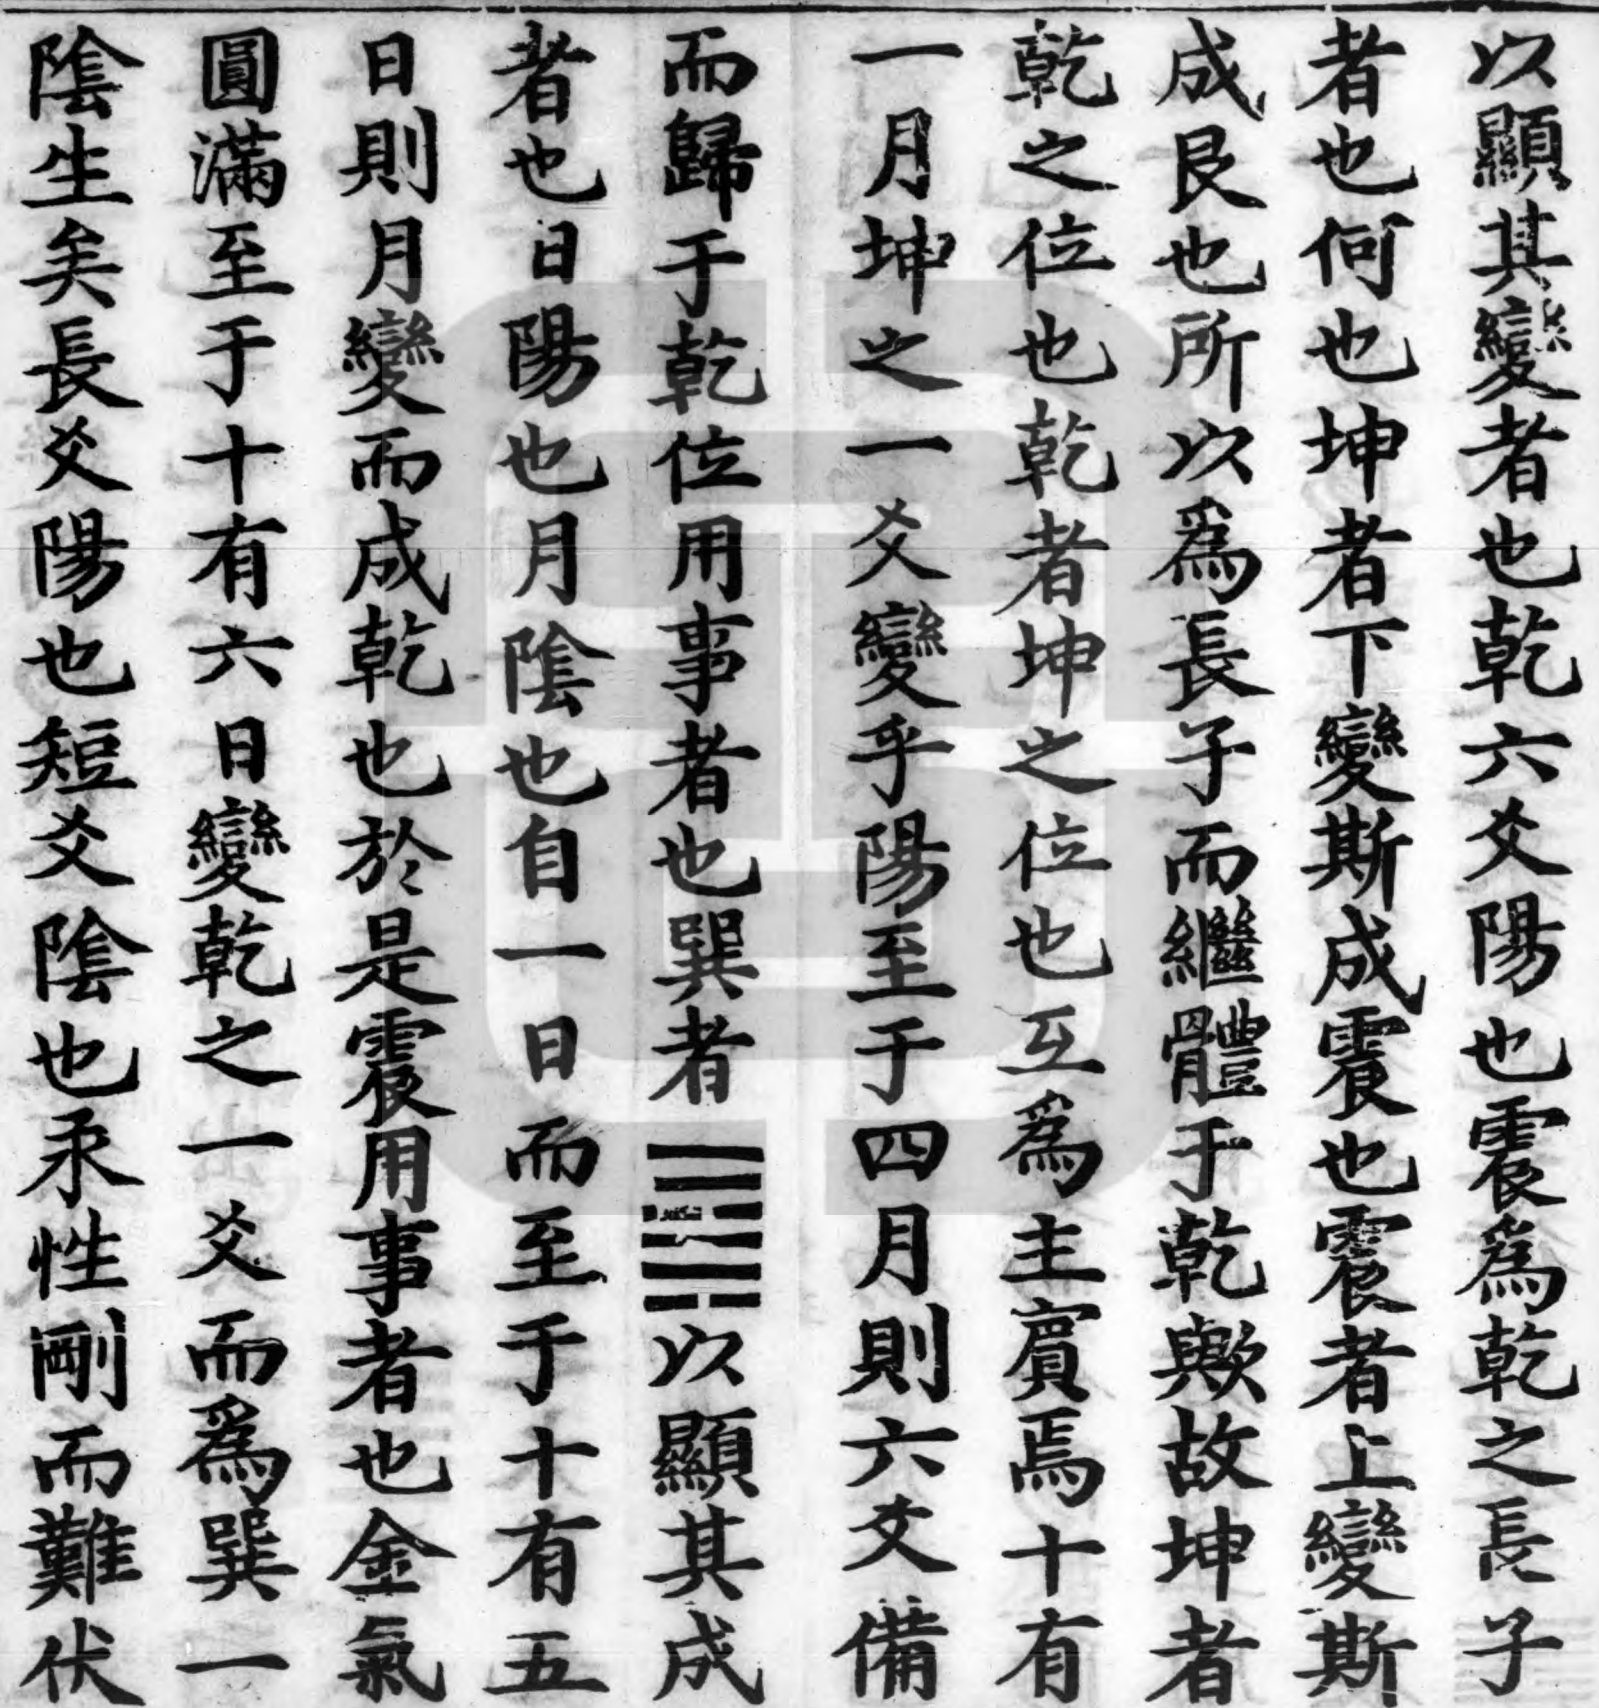 以顯其變者也乾六爻陽也震爲乾之長子
者也何也坤者下變斯成震也震者上變斯
成艮也所以爲長子而繼體于乾歟故坤者
乾之位也乾者坤之位也互爲主賔焉十有
一月坤之一爻變乎陽至于四月則六爻備
而歸于乾位用事者也巽者䷸以顯其成
者也日陽也月隂也自一日而至于十有五
日則月變而成乾也於是震用事者也金氣
圓滿至于十有六日變乾之一爻而爲巽一
隂生矣長爻陽也短爻隂也汞性剛而難伏